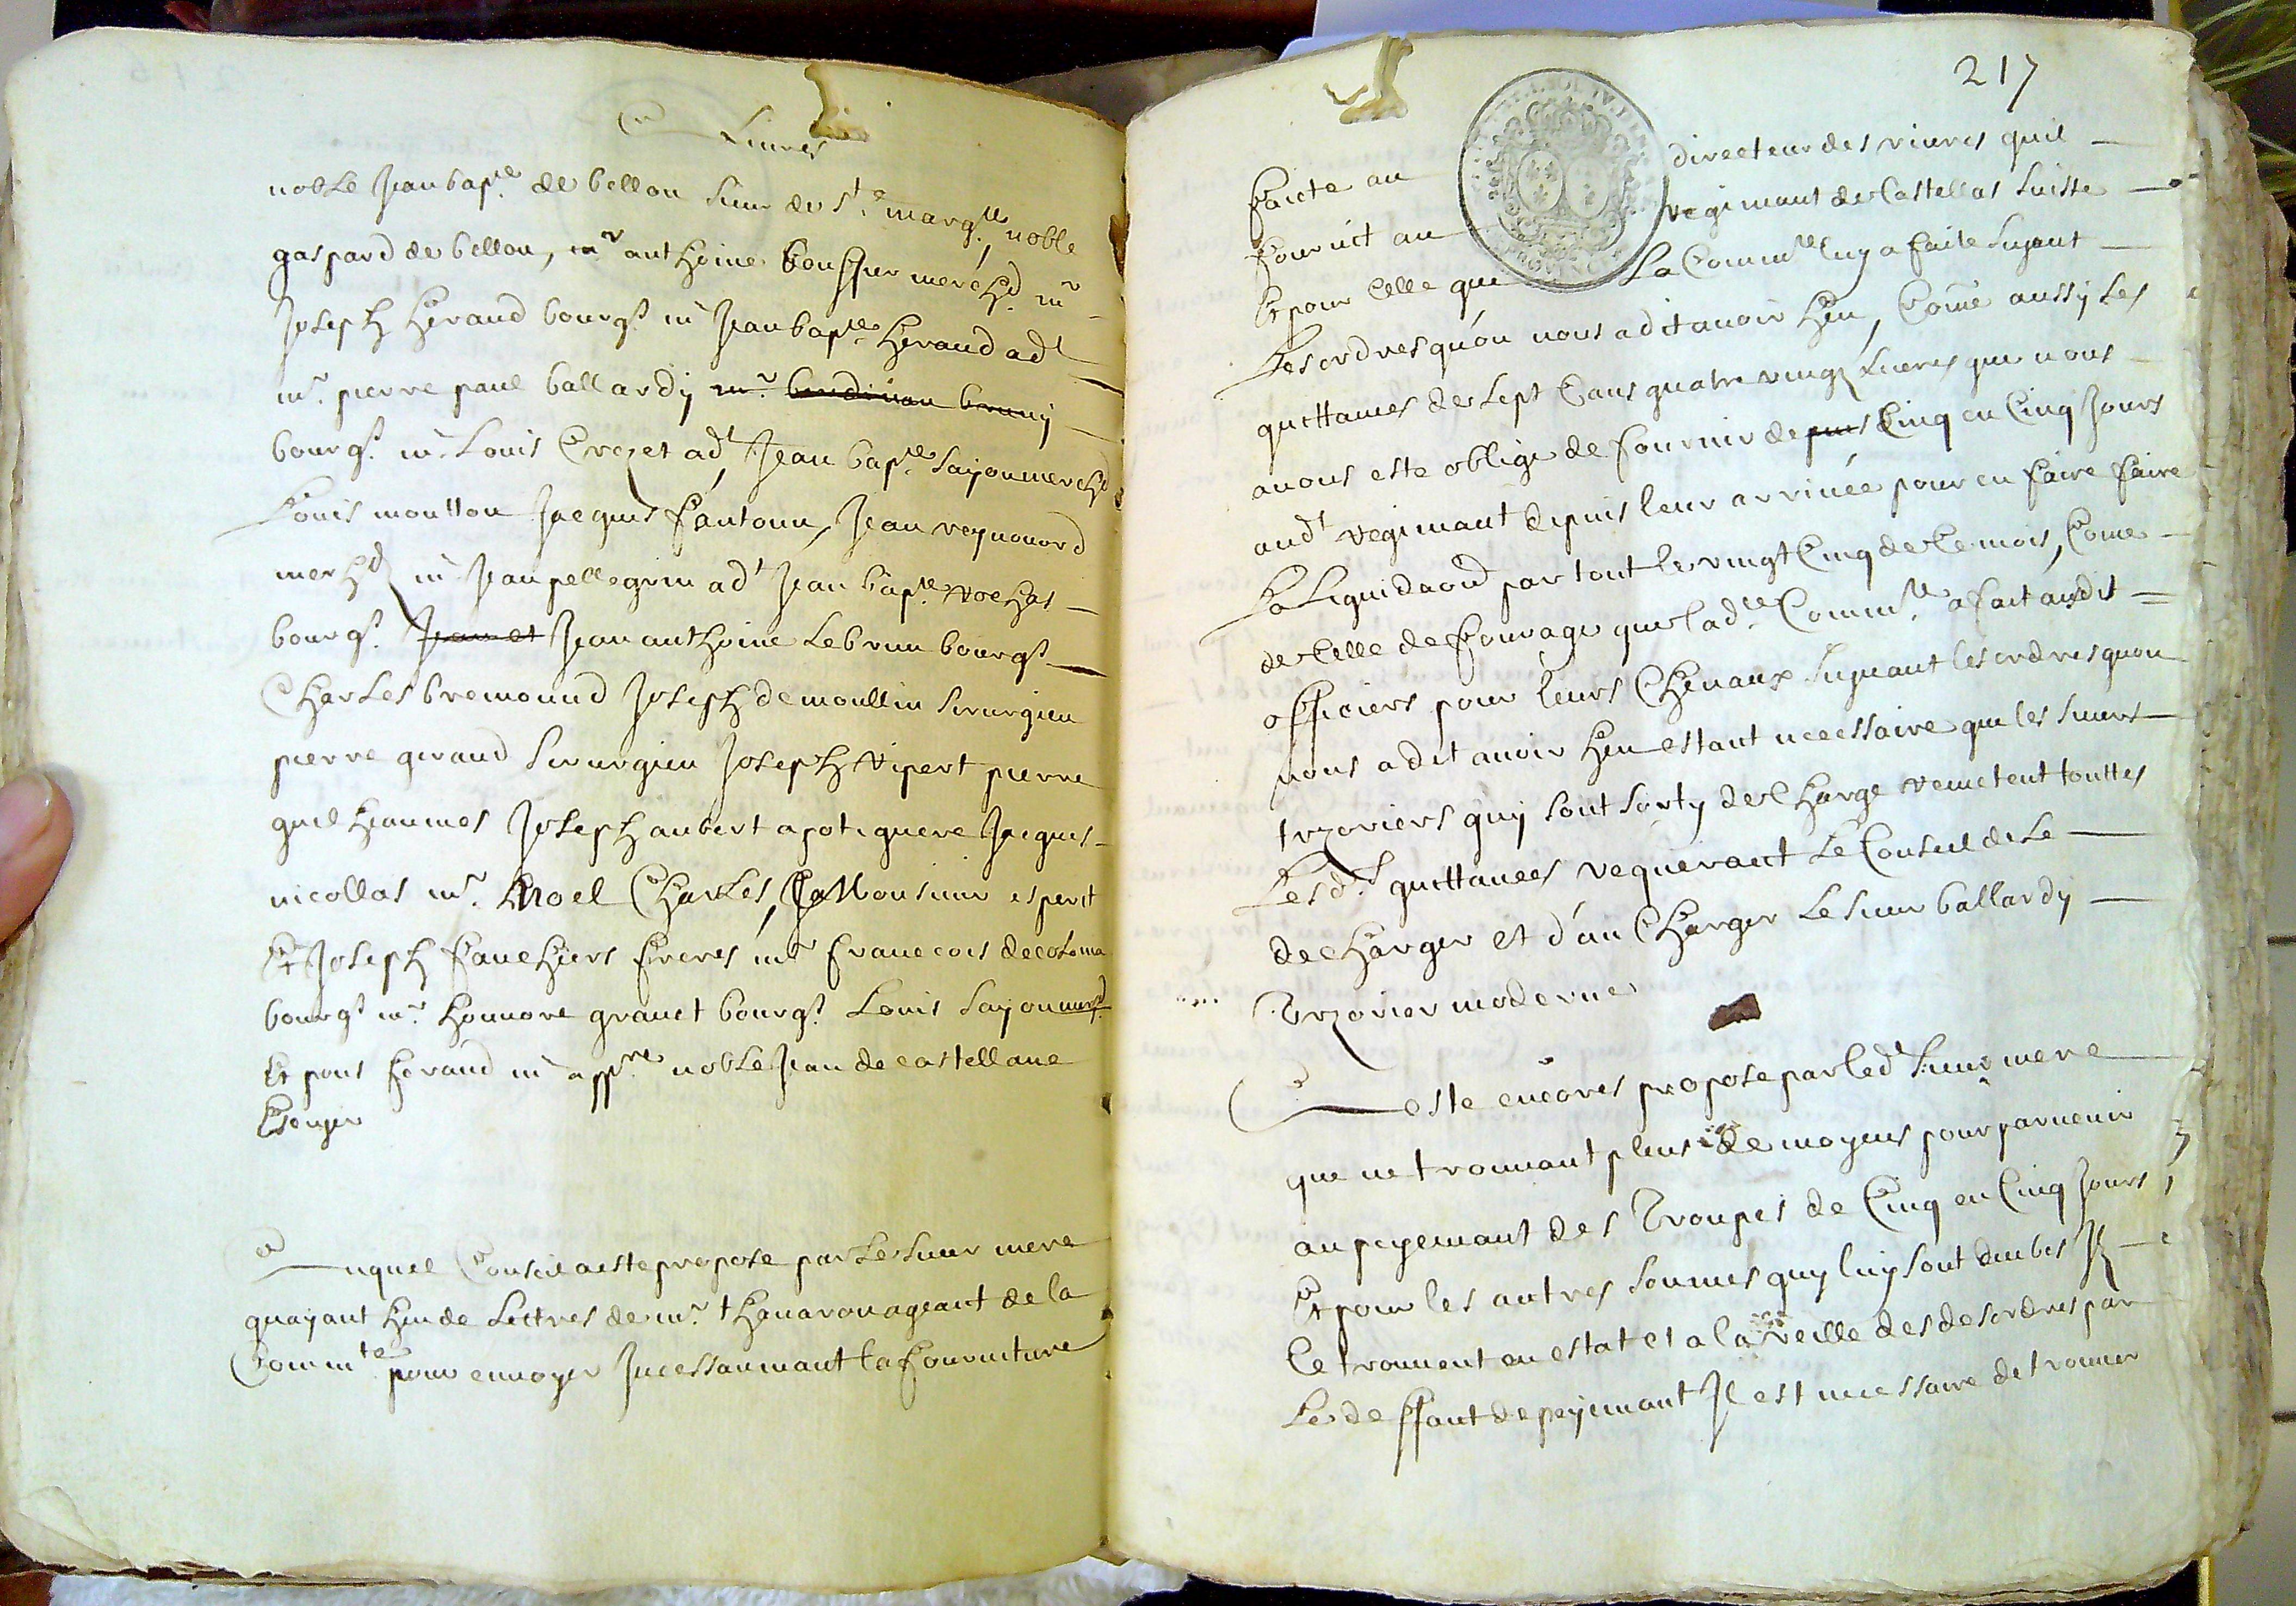 Liures
noble Jean bap.te de bellon sieur de s.te marg.te, noble
gaspard de bellon, m.r anthoine bousssier merchd. m.r
Joseph heraud bourg.s m.r Jean bap.te heraud ad.t
m.r pierre paul ballardy m.r bendinau bruny
bourg.s m.r Louis Crozet ad.t Jean bap.te sayou merchd
Louis moutton Jacques fantoun, Jean reynouard
merhd m.r Jean pellegrin ad.t Jean bap.te rochas
bourg.s Jean et Jean anthoine Lebrun bourg.s
Charles bremound Joseph demoullin sirurgien
pierre geraud sirurgien Joseph vipert pierre
guilheaumes Joseph aubert apotiquere Jacques
nicollas m.r Noel Charles, Monsieur esperit
Et Joseph fauchiers freres m.r francois de colonia
bourg.s m.r honnore granet bourg.s Louis sayou merd.
Et pons feraud m.r app.re noble Jean de castellane
Esc.uyer
Auquel Conseil a este propose par Le sieur mere
quayant heu de Lettres de m.r thenaron ageant de la
Comm.te pour envoyer Incessammant la fourniture
217
faicte au directeur des viures quil
fournit au regimant de Castellas suisse
Et pour celle que La Comm.te luy a faite suyvant
Les ordres qu'on nous a dit avoir heu, Come aussy les
quittances de sept cans quatre vingz Liures que nous
avons este oblige de fournir depuis Cinq en Cinq Jours
aud.t regimant depuis leur arrivée pour en faire faire
La Liquidaon par tout le vingt Cinq de ce mois, Come
de celle de fourage que lad.te Comm.te a fait ausdit
officiers pour leurs Chevaux suyvant les ordres quon
nous a dit avoir heu estant necessaire que les sieurs
trezoriers quy sont sorty de Charge remetent touttes
Lesd.s quittances requerant Le Conseil de Le
decharger et d'an Charger Le sieur ballardy
Trezorier moderne
A este encores propose par led.t sieur mere
que ne trouvant plus de moyens pour parvenir
au peyemant des Troupes de Cinq en Cinq Jours
Et pour les autres sommes quy luy sont deubes Il
ce trouvent en estat et a la veille des desordres par
Le deffaut de peyemant Il est necessaire de trouver